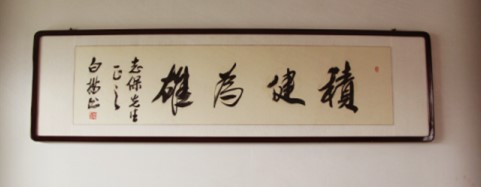 積健為雄
志保先生
正之